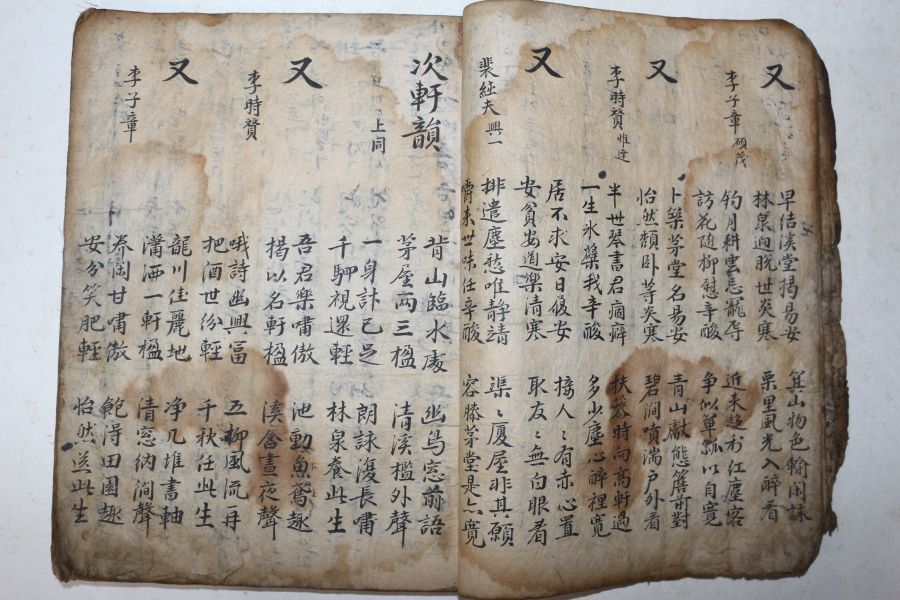 又
李子章 碩茂
早结溪堂揭易安 箕山物色輸閑詠
林泉逈脫世炎寒 栗里風光入醉看
釣月耕雲忘寵辱 近来趍利紅塵客
訪花随柳慰辛酸 争似簞瓢以自寬
又
李時贇 惟達
卜築茅堂名易安 青山獻態簷前對
怡然頹卧等炎寒 碧澗噴湍戶外看
半世琴書君痼癖 扶筇時向高軒過
一生氷蘗我辛酸 多少塵心醉裡寬
又
裴継夫 興一
居不求安日復安 接人〻有亦心置
安貧安道樂清寒 耻友〻無白眼看
排遣塵愁唯静靖 渠〻厦屋非其願
来世味任辛酸 容膝茅堂是亦寬
次軒韻
上同
背山臨水處 幽鳥窓前語
茅屋兩三楹 清溪檻外聲
一身計已足 朗詠復長嘯
千駟視還輕 林泉養此生
又
李時贇
吾君樂嘯傲 池動魚鳶趣
揭以名軒楹 溪舍晝夜聲
哦詩幽興富 五柳風流再
把酒世紛輕 千秋任此生
又
李子章
龍川佳麗地 净几堆書軸
瀟洒一軒楹 清窓納澗聲
卜澗甘嘯傲 飽淂田園趣
安分笑肥輕 怡然送此生